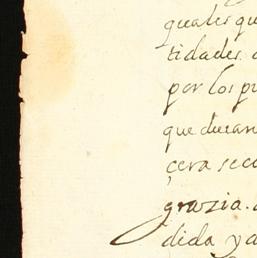 quales qu
tidades.
por los pu
que duran
çera seco
grazia.
dida ya